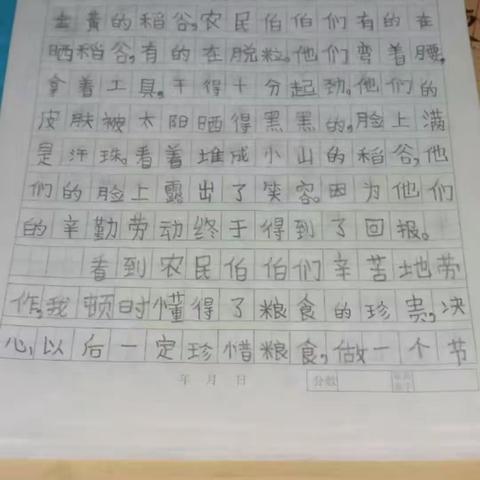 黄的稻谷,农民伯伯们有的在
晒稻谷,有的在脱粒。他们弯着腰,
拿着工具,干得十分起劲。他们的
皮肤被太阳晒得黑黑的,脸上满
是汗珠。看着堆成小山的稻谷,他
们的脸上露出了笑容。因为他们
的辛勤劳动终于得到了回报。
看到农民伯伯们辛苦地劳
作,我顿时懂得了粮食的珍贵,决
心,以后一定珍惜粮食,做一个节
年 月 日 分数